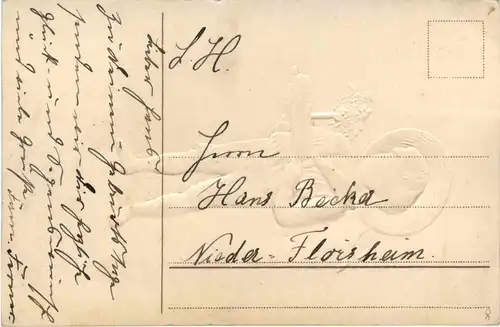 Lieber Hans!
Zu Deinem Geburtstage
senden wir die herzl.
Glück- und Segenswünsche
und viele Grüße
L. H.
Herrn
Hans Becker
Nieder-Florsheim.